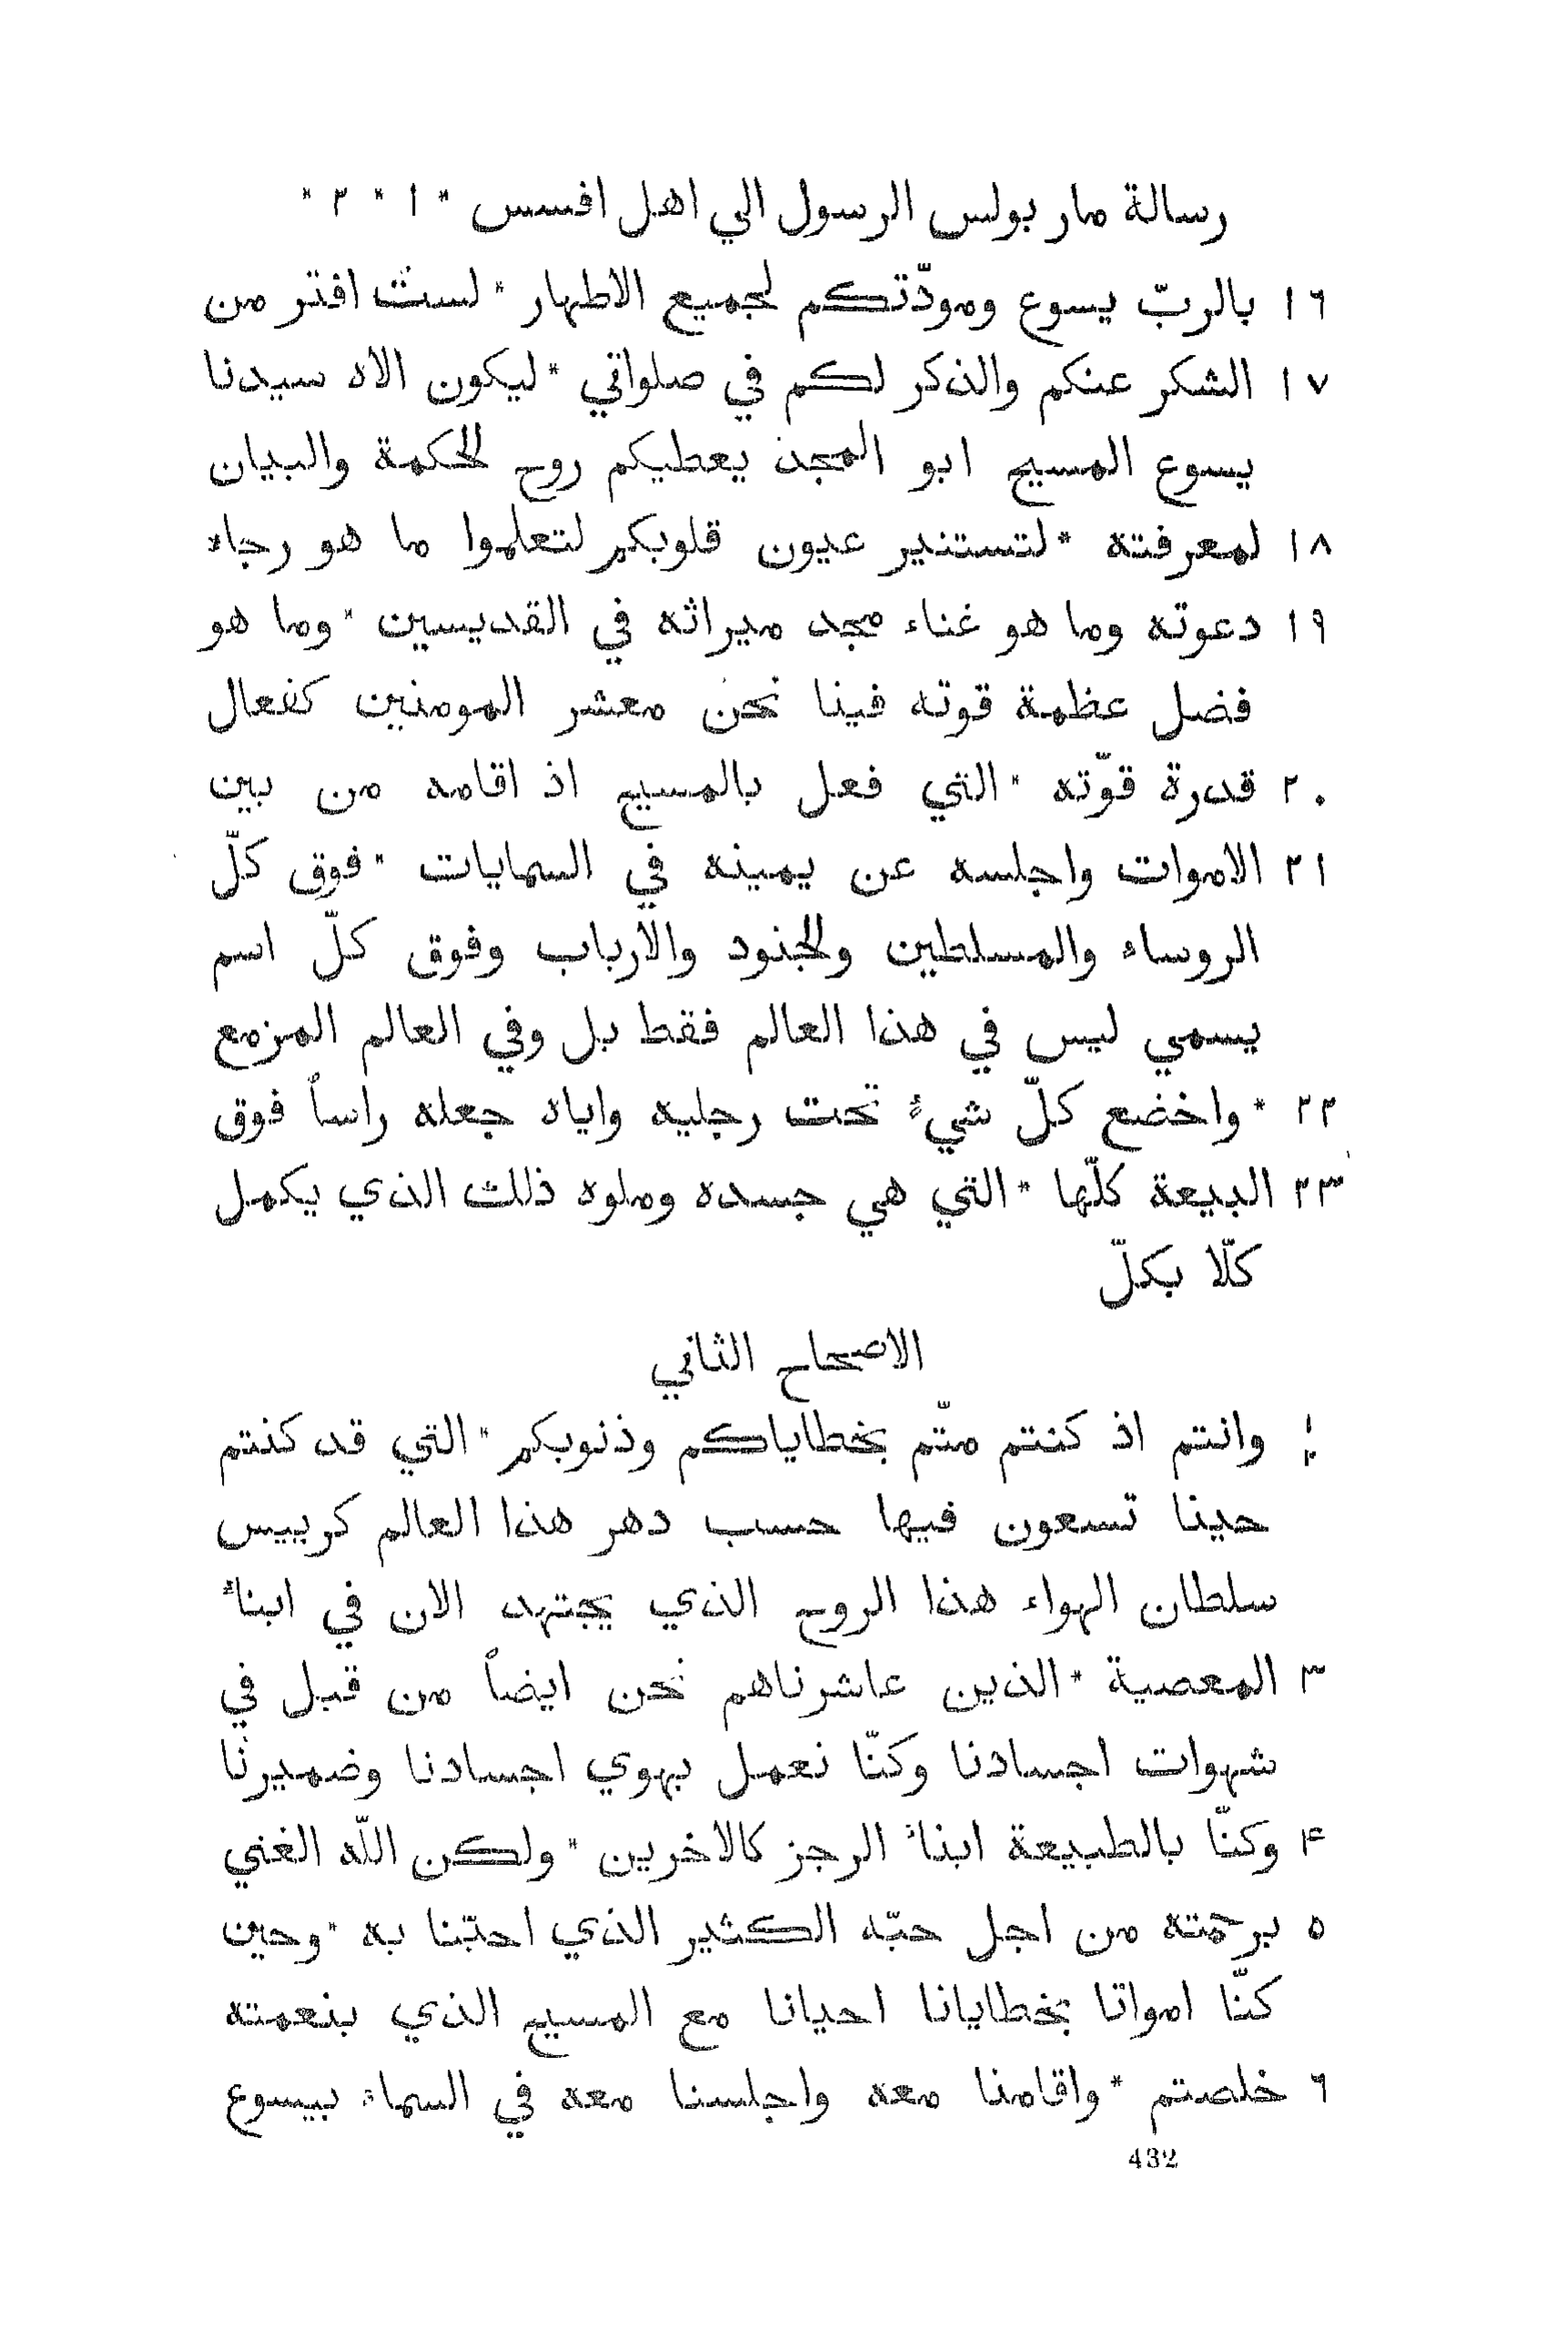 رسالة مار بولس الرسول الي اهل افسس * ١ * ٢ *
١٦ بالربّ يسوع ومودّتكم لجميع الاطهار * لست افتر من
١٧ الشكر عنكم والذكر لكم في صلواتي * ليكون الاه سيدنا
يسوع المسيح ابو المجد يعطيكم روح الحكمة والبيان
١٨ لمعرفته * لتستنير عيون قلوبكم لتعلموا ما هو رجاء
١٩ دعوته وما هو غناء مجد ميراثه في القديسين * وما هو
فضل عظمة قوته فينا نحن معشر المومنين كفعال
٢٠ قدرة قوّته * التي فعل بالمسيح اذ اقامه من بين
٢١ الاموات واجلسه عن يمينه في السمايات * فوق كلّ
الروساء والمسلطين والجنود والارباب وفوق كلّ اسم
يسمي ليس في هذا العالم فقط بل وفي العالم المزمع
٢٢ * واخضع كلّ شيء تحت رجليه واياه جعله راساً فوق
٢٣ البيعة كلّها * التي هي جسده وملوه ذلك الذي يكمل
كلّا بكلّ
الاصحاح الثاني
١ ٢ وانتم اذ كنتم متّم بخطاياكم وذنوبكم * التي قد كنتم
حينا تسعون فيها حسب دهر هذا العالم كرييس
سلطان الهواء هذا الروح الذي يجتهد الان في ابناء
٣ المعصية * الذين عاشرناهم نحن ايضاً من قبل في
شهوات اجسادنا وكنّا نعمل بهوي اجسادنا وضميرنا
۴ وكنّا بالطبيعة ابناء الرجز كالاخرين * ولكن اللّه الغني
٥ برحمته من اجل حبّه الكثير الذي احبّنا به * وحين
كنّا امواتا بخطايانا احيانا مع المسيح الذي بنعمته
٦ خلصتم * واقامنا معه واجلسنا معه في السماء بيسوع
432